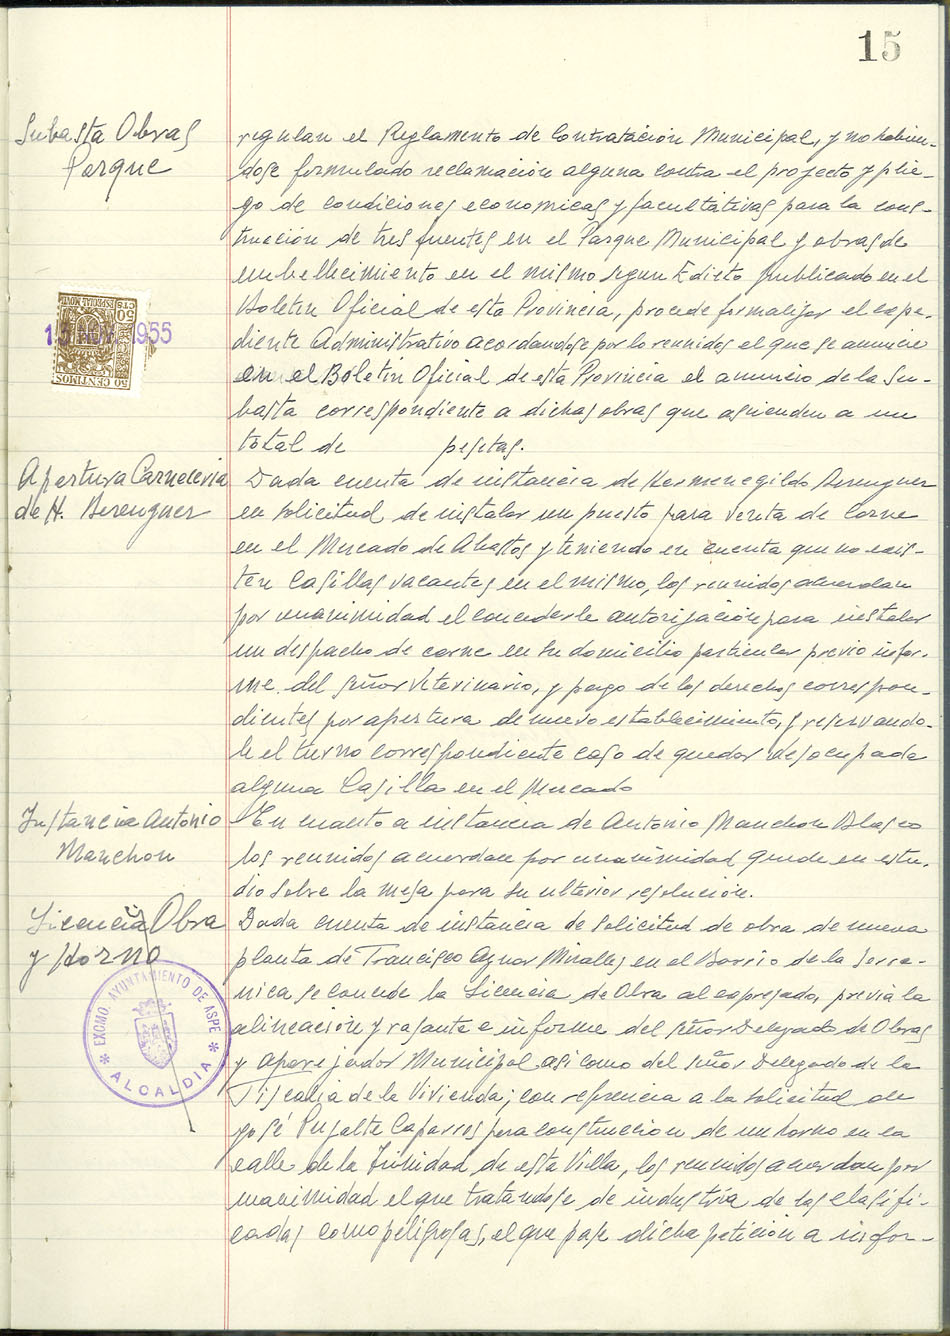 15
Subasta Obras
Parque
regulan el Reglamento de Contratación Municipal, y no habien-
dose formulado reclamación alguna contra el proyecto y plie-
go de condiciones economicas y facultativas para la cons-
trucción de tres fuentes en el Parque Municipal y obras de
embellecimiento en el mismo segun Edicto publicado en el
Boletin Oficial de esta Provincia, procede formalizar el expe-
diente Administrativo acordandose por lo reunidos el que se anuncie
en el Boletin Oficial de esta Provincia el anuncio de la Su-
basta correspondiente a dichas obras que ascienden a un
total de pesetas.
50 CTS
ESPECIAL MOVIL
50 CENTIMOS
15 NOV. 1955
Apertura Carneceria
de H. Berenguer
Dada cuenta de instancia de Hermenegildo Berenguer
en solicitud de instalar un puesto para venta de Carne
en el Mercado de Abastos y teniendo en cuenta que no exis-
ten Casillas vacantes en el mismo, los reunidos acuerdan
por unanimidad el concederle autorización para instalar
un despacho de carne en su domicilio particular previo infor-
me del Señor Veterinario, y pago de los derechos correspon-
dientes por apertura de nuevo establecimiento, reservando-
le el turno correspondiente caso de quedar desocupada
alguna Casilla en el Mercado
Instancia Antonio
Manchon
En cuanto a instancia de Antonio Manchon Blasco
los reunidos acuerdan por unanimidad quede en estu-
dio sobre la mesa para su ulterior resolución.
Licencia Obra
y Horno
Dada cuenta de instancia de solicitud de obra de nueva
planta de Francisco Aznar Miralles en el Barrio de la Serra-
nica se concede la Licencia de Obra al expresado, previa la
alineación y rasante e informe del Señor Delegado de Obras
y Aparejador Municipal asi como del Señor Delegado de la
Fiscalia de la Vivienda; con referencia a la solicitud de
José Pujalte Caparros para construccion de un horno en la
calle de la Trinidad de esta Villa, los reunidos acuerdan por
unanimidad el que tratandose de industria de las clasifi-
cadas como peligrosas, el que pase dicha petición a infor-
EXCMO. AYUNTAMIENTO DE ASPE
* ALCALDIA *